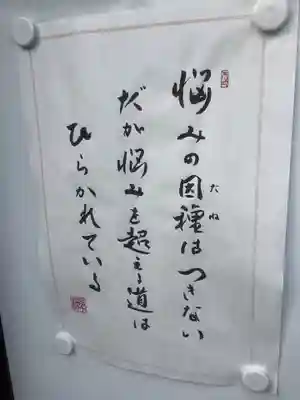 悩みの因種はつきない
だね
だが悩みを超える道は
ひらかれている